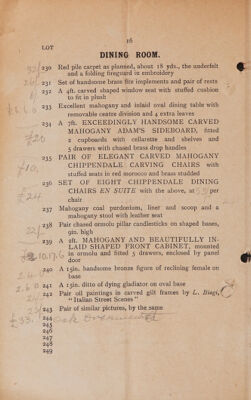 16
LOT
DINING ROOM.
230 Red pile carpet as planned, about 18 yds., the underfelt
and a folding fireguard in embroidery
231 Set of handsome brass fire implements and pair of rests
232 A 4ft. carved shaped window seat with stuffed cushion
to fit in plush
233 Excellent mahogany and inlaid oval dining table with
removable centre division and 4 extra leaves
234 A 7ft. EXCEEDINGLY HANDSOME CARVED
MAHOGANY ADAM'S SIDEBOARD, fitted
2 cupboards with cellarette and shelves and
5 drawers with chased brass drop handles
£20
235 PAIR OF ELEGANT CARVED MAHOGANY
CHIPPENDALE CARVING CHAIRS with
stuffed seats in red morocco and brass studded
£10
236 SET OF EIGHT CHIPPENDALE DINING
CHAIRS EN SUITE with the above, at per
chair
£24
237 Mahogany coal purdonium, liner and scoop and a
mahogany stool with leather seat
238 Pair chased ormolu pillar candlesticks on shaped bases,
9in. high
239 A 2ft. MAHOGANY AND BEAUTIFULLY IN-
LAID SHAPED FRONT CABINET, mounted
in ormolu and fitted 5 drawers, enclosed by panel
door
240 A 15in. handsome bronze figure of reclining female on
base
241 A 13in. ditto of dying gladiator on oval base
242 Pair oil paintings in carved gilt frames by L. Biagi,
"Italian Street Scenes"
243 Pair of similar pictures, by the same
244
245
246
247
248
249